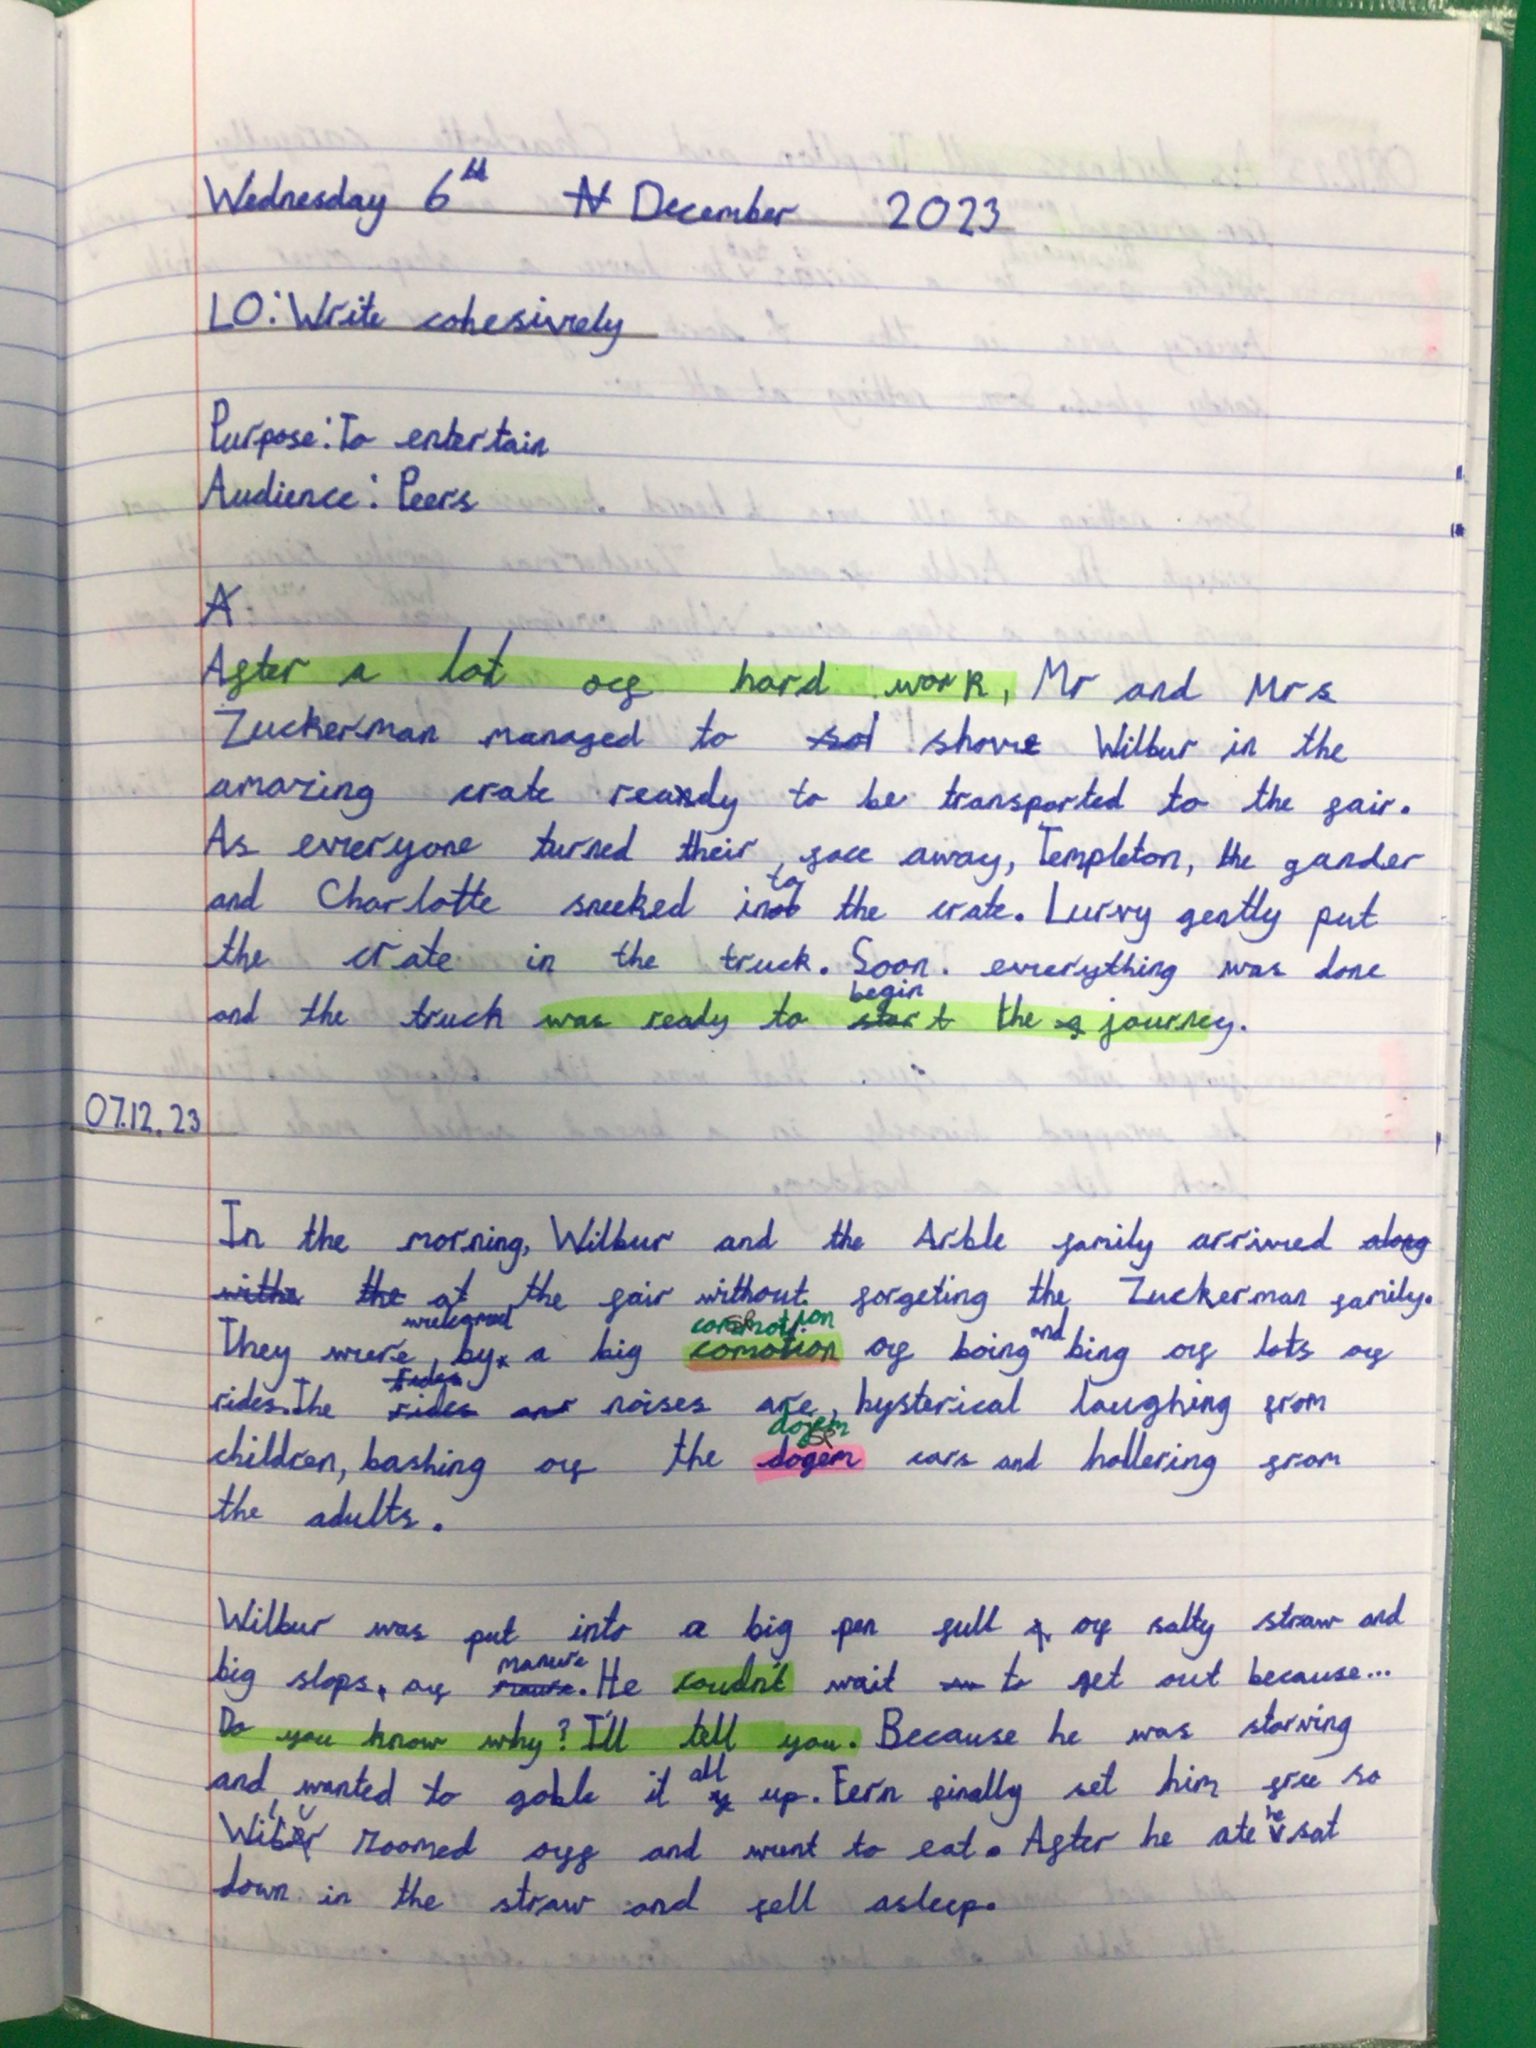 Wednesday 6th December 2023
LO: Write cohesively
Purpose: To entertain
Audience: Peers
A
After a lot of hard work, Mr and Mrs
Zuckerman managed to shove Wilbur in the
amazing crate ready to be transported to the fair.
As everyone turned their face away, Templeton, the gander
and Charlotte sneeked into the crate. Lurvy gently put
the crate in the truck. Soon. everything was done
begin
and the truck was ready to start the journey.
07.12.23
In the morning, Wilbur and the Arble family arrived along
withe the at the fair without forgeting the Zuckerman family.
welcomed commotion
They were, by a big comotion of boing and bing of lots of
rides
rides. The rides and noises are, hysterical laughing from
dojem
children, bashing of the dogem cars and hollering from
the adults.
Wilbur was put into a big pen full of salty straw and
manure
big slops, of. He coudn't wait to get out because...
Do you know why? I'll tell you. Because he was starving
and wanted to goble it all up. Fern finally set him free so
zoomed off and went to eat. After he ate he sat
down in the straw and fell asleep.